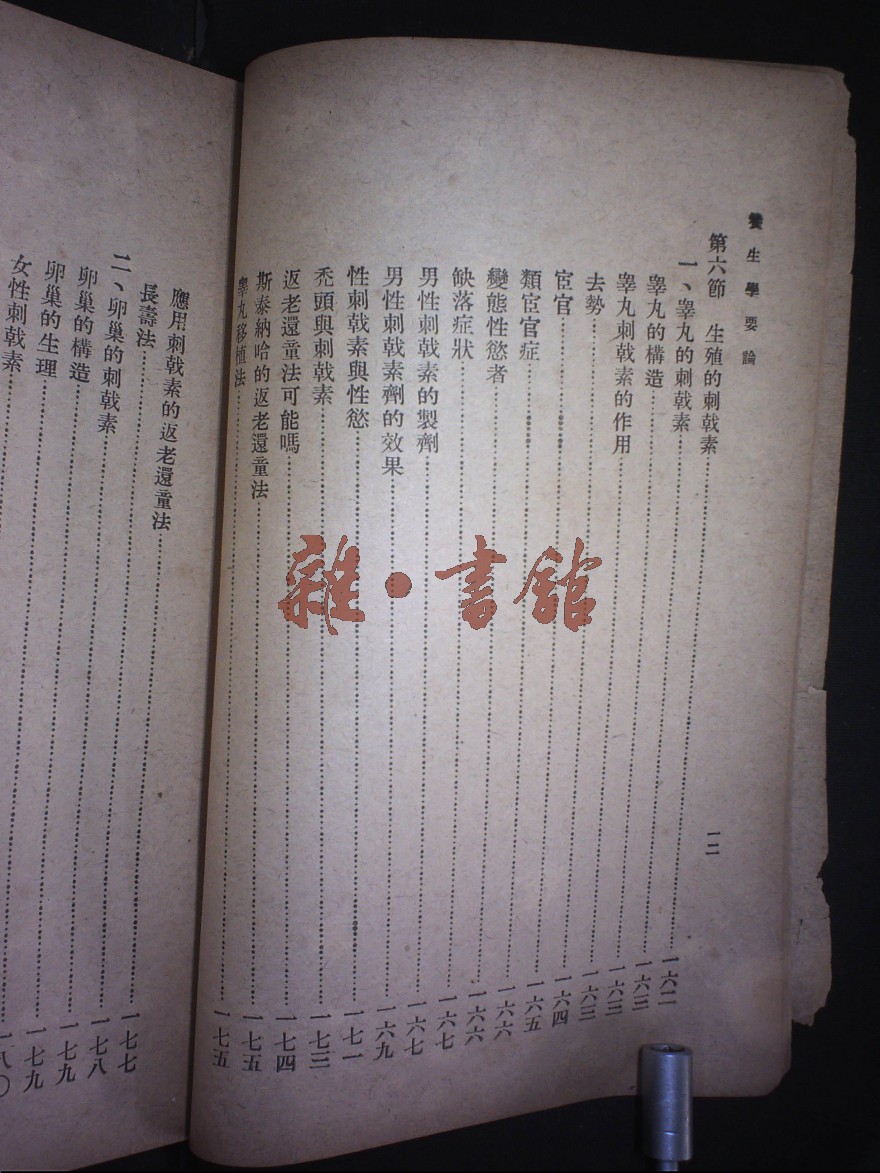 養生學要論
第六節 生殖的刺戟素……一六二
一、睾丸的刺戟素……一六三
睾丸的構造……一六三
睾丸刺戟素的作用……一六三
去勢……一六四
宦官……一六五
類宦官症……一六六
變態性慾者……一六六
缺落症狀……一六七
男性刺戟素的製劑……一六七
男性刺戟素劑的效果……一六九
性刺戟素與性慾……一七一
禿頭與刺戟素……一七三
返老還童法可能嗎……一七四
斯泰納哈的返老還童法……一七五
睾丸移植法……一七五
一二
應用刺戟素的返老還童法……一七七
長壽法……一七八
二、卵巢的刺戟素……一七九
卵巢的構造……一七九
卵巢的生理……一八〇
女性刺戟素……
雜·書館